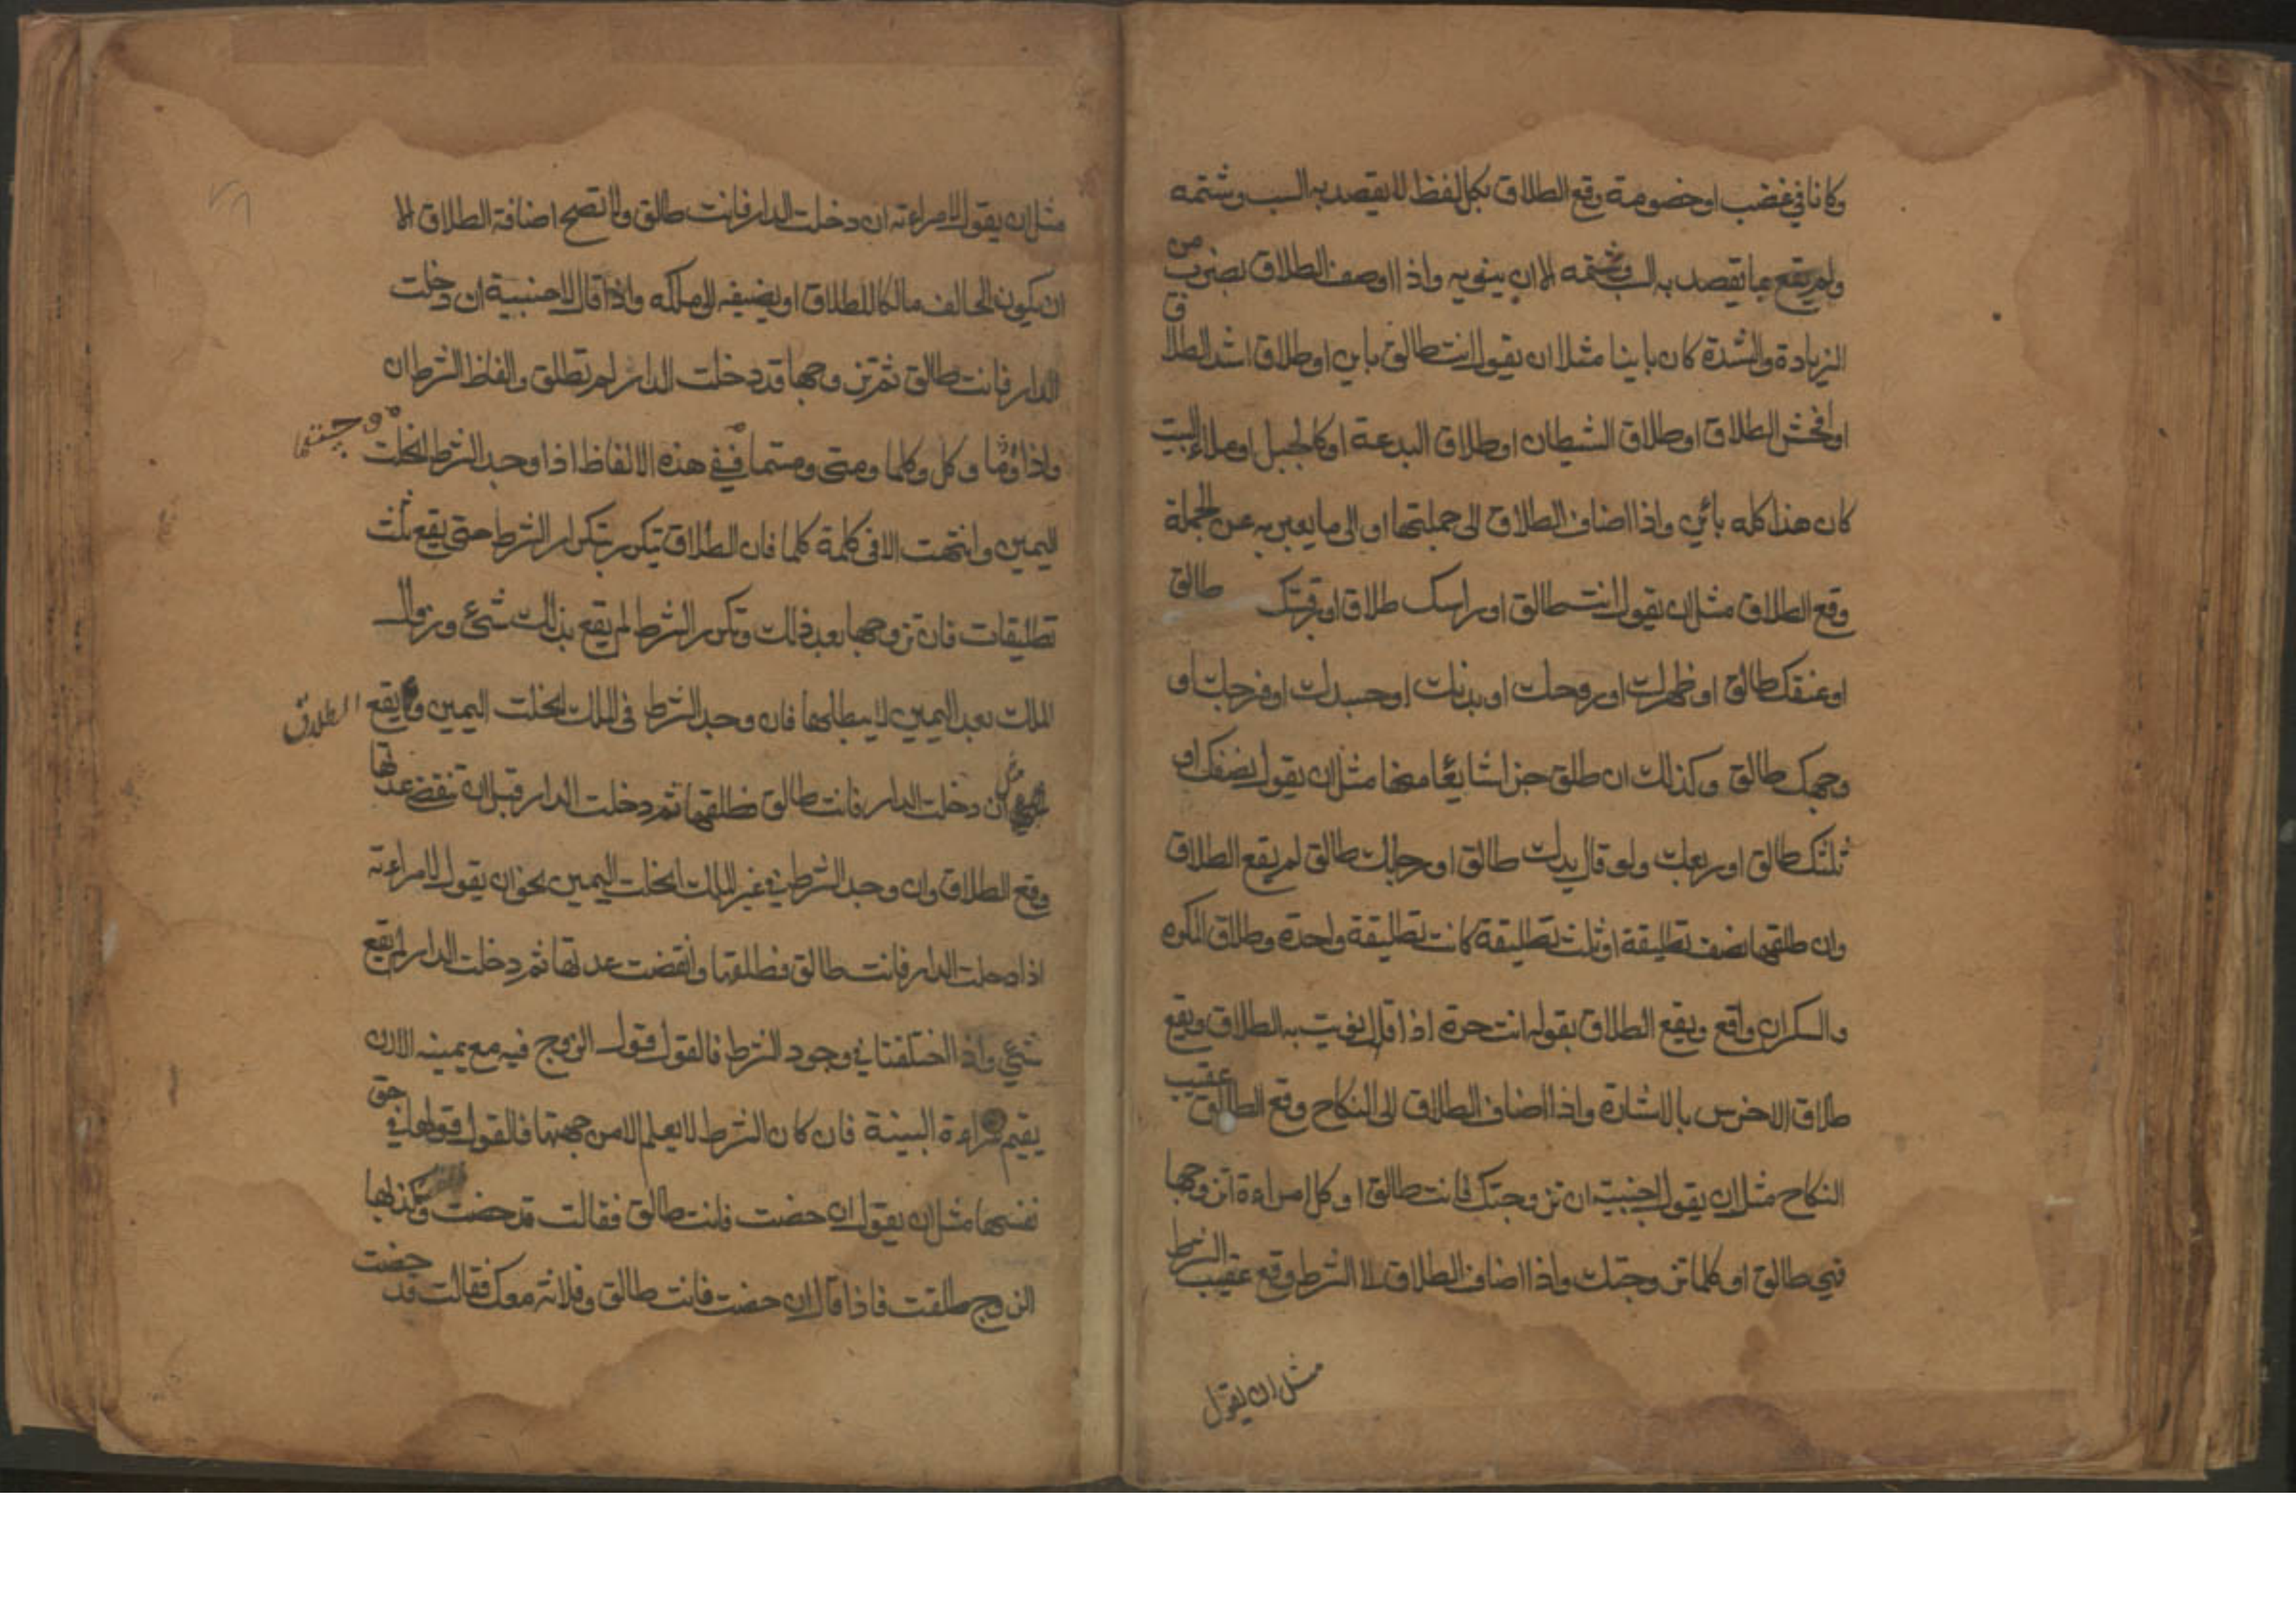 وكانا في غضب او خضومة وقع الطلاق بكل لفظ لا يقصد به السب وشتمه
ولم يقع بما يقصد به السب وشتمه الا ان ينويه واذا اوصف الطلاق بضرب من
الزيادة والشدة كان باينا مثلا ان يقول انت طالق باين او طلاق اشد الطلاق
او افحش الطلاق او طلاق الشيطان او طلاق البدعة او كالجبل او ملاء البيت
كان هذا كله بائن واذا اضاف الطلاق الى جملتها او الى ما يعبر به عن الجملة
وقع الطلاق مثل ان يقول انت طالق او راسك طلاق او رقبتك طالق
او عنقك طالق او ظهرك او روحك او بدنك او جسدك او فرجك او
وجهك طالق وكذلك ان طلق جزا شايعا منها مثل ان يقول نصفك او
ثلثك طالق او ربعك ولو قال يدك طالق او رجلك طالق لم يقع الطلاق
وان طلقها نصف تطليقة او ثلث تطليقة كانت تطليقة واحدة وطلاق المكره
والسكران واقع ويقع الطلاق بقوله انت حرة اذا قال نويت به الطلاق ويقع
طلاق الاخرس بالاشارة واذا اضاف الطلاق الى النكاح وقع الطلاق عقيب
النكاح مثل ان يقول لاجنبية ان تزوجتك فانت طالق او كل امراءة اتزوجها
فهي طالق او كلما تزوجتك واذا اضاف الطلاق لا الشرط وقع عقيب الشرط
مثل ان يقول
مثل ان يقول لامراءته ان دخلت الدار فانت طالق ولا تصح اضافة الطلاق الا
ان يكون الحالف مالكا للطلاق او يضيفه الى ملكه واذا قال لاجنبية ان دخلت
الدار فانت طالق ثم تزوجها قد دخلت الدار لم تطلق والفاظ الشرط ان
واذا وما وكل وكلما ومتى ومتما ففي هذه الالفاظ اذا وجد الشرط انحلت
اليمين وانتهت الا في كلمة كلما فان الطلاق يتكرر بتكرار الشرط حتى يقع ثلث
تطليقات فان تزوجها بعد ذلك وتكرر الشرط لم يقع بذلك شيء وزوال
الملك بعد اليمين لا يبطلها فان وجد الشرط في الملك انحلت اليمين ويقع الطلاق
ان دخلت الدار فانت طالق فطلقها ثم دخلت الدار قبل ان تنقض عدتها
وقع الطلاق وان وجد الشرط في غير الملك انحلت اليمين نحو ان يقول لامراءته
اذا دخلت الدار فانت طالق فطلقها وانقضت عدتها ثم دخلت الدار لم يقع
شيء واذا اختلفتا في وجود الشرط فالقول قول الزوج فيه مع يمينه الا ان
يقيم المراءة البينة فان كان الشرط لا يعلم الا من جهتها فالقول قولها في حق
نفسها مثل ان يقول ان حضت فانت طالق فقالت قد حضت وكذبها
الزوج طلقت فاذا قال ان حضت فانت طالق وفلانة معك فقالت قد حضت